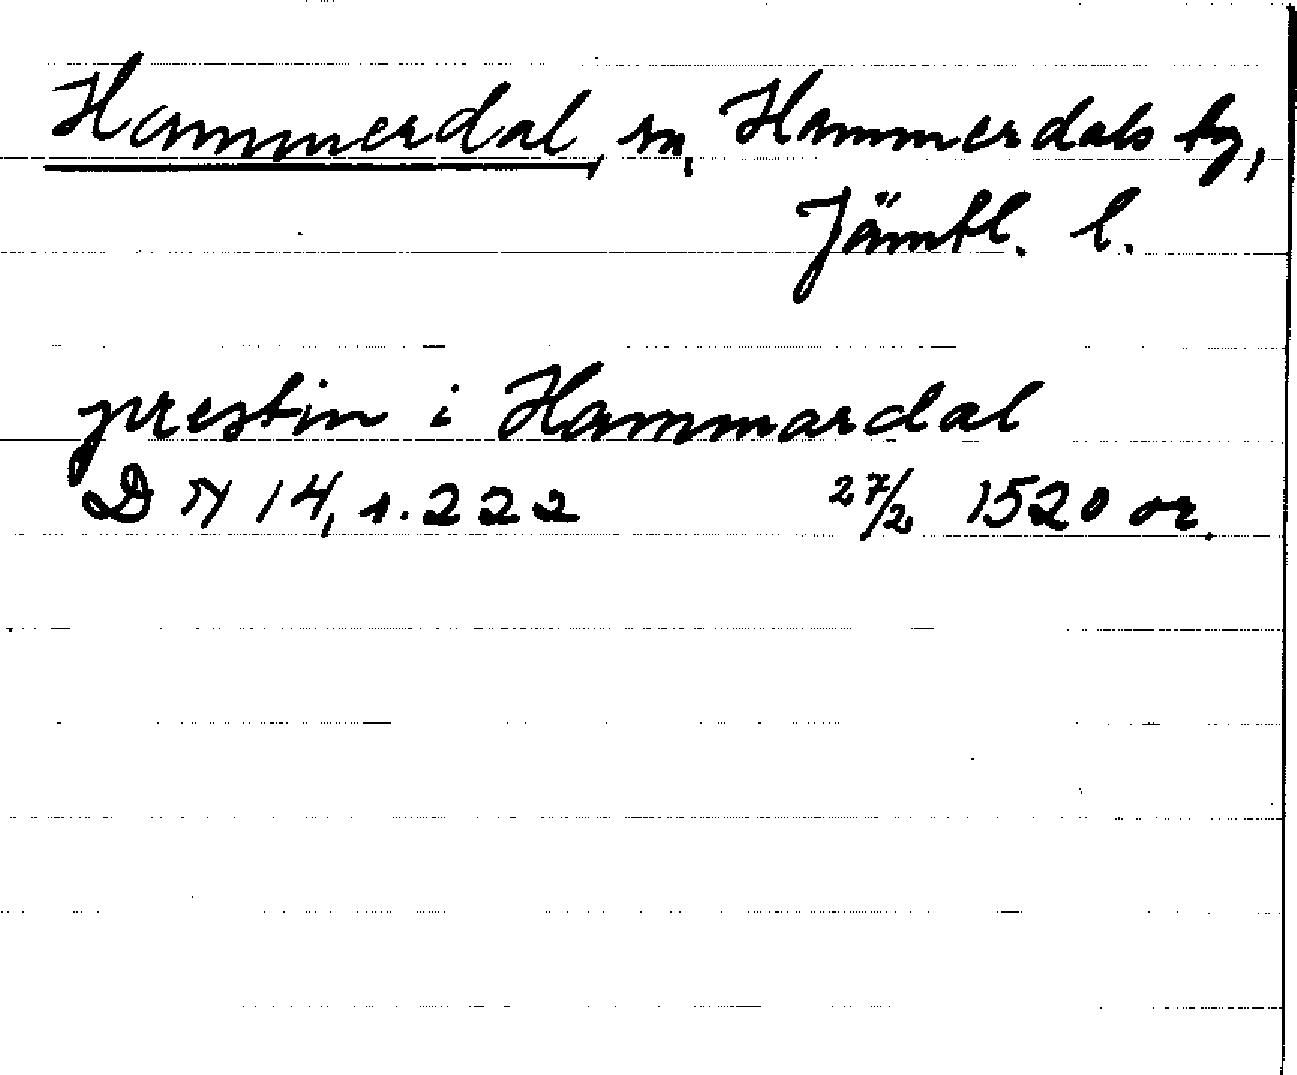 Hammerdal, sn, Hammerdals tg,
Jämtl. l.
prestin i Hammardal
DN 14, s. 222 27/2 1520 or.